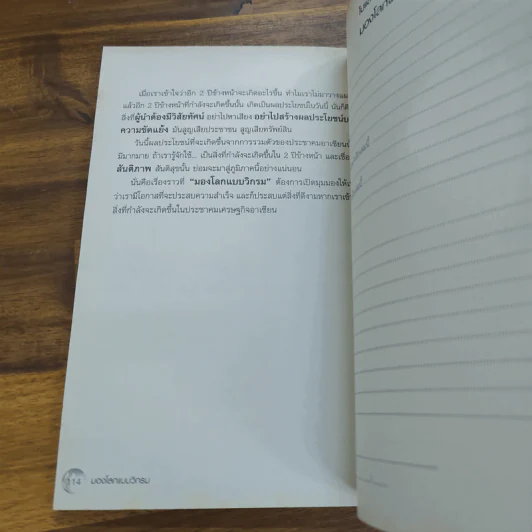 เมื่อเราเข้าใจว่าอีก 2 ปีข้างหน้าจะเกิดอะไรขึ้น ทำไมเราไม่มาวางแผ
แล้วอีก 2 ปีข้างหน้าที่กำลังจะเกิดขึ้นนั้น เกิดเป็นผลประโยชน์ในวันนี้ นั่นก็คื
สิ่งที่ผู้นำต้องมีวิสัยทัศน์ อย่าไปหาเสียง อย่าไปสร้างผลประโยชน์บ
ความขัดแย้ง มันสูญเสียประชาชน สูญเสียทรัพย์สิน
วันนี้ผลประโยชน์ที่จะเกิดขึ้นจากการรวมตัวของประชาคมอาเซียน
มีมากมาย ถ้าเรารู้จักใช้... เป็นสิ่งที่กำลังจะเกิดขึ้นใน 2 ปีข้างหน้า และเรื่อ
สันติภาพ สันติสุขนั้น ย่อมจะมาสู่ภูมิภาคนี้อย่างแน่นอน
นั่นคือเรื่องราวที่ "มองโลกแบบวิกรม" ต้องการเปิดมุมมองให้
ว่าเรามีโอกาสที่จะประสบความสำเร็จ และก็ประสบแต่สิ่งที่ดีงามหากเราเข้
สิ่งที่กำลังจะเกิดขึ้นในประชาคมเศรษฐกิจอาเซียน
114 มองโลกแบบวิกรม